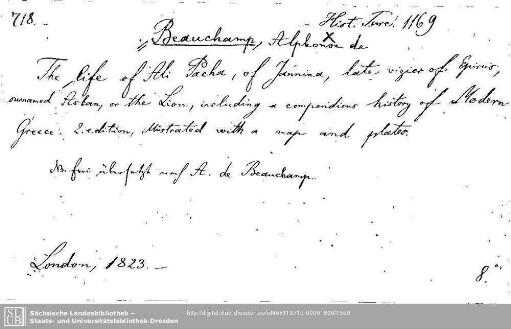 718.
Hist. Turc. 1169
Beauchamp, Alphonse de
The life of Ali Pacha, of Jannina, late vizier of Epirus,
surnamed Aslan, or the Lion, including a compendious history of Modern
Greece. 2. edition, illustrated with a map and plates.
NB. frei übersetzt nach A. de Beauchamp.
London, 1823.
8.
SLUB
Sächsische Landesbibliothek –
Staats- und Universitätsbibliothek Dresden